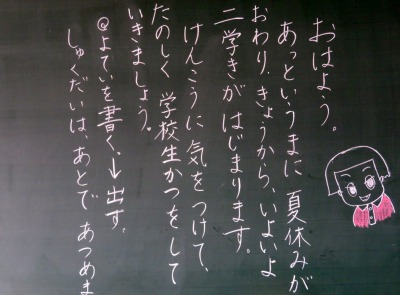 おはよう。
あっというまに 夏休みが
おわり、きょうから、いよいよ
二学きが はじまります。
けんこうに 気をつけて、
たのしく 学校生かつをして
いきましょう。
@よていを書く、→出す。
しゅくだいは、あとで あつめま